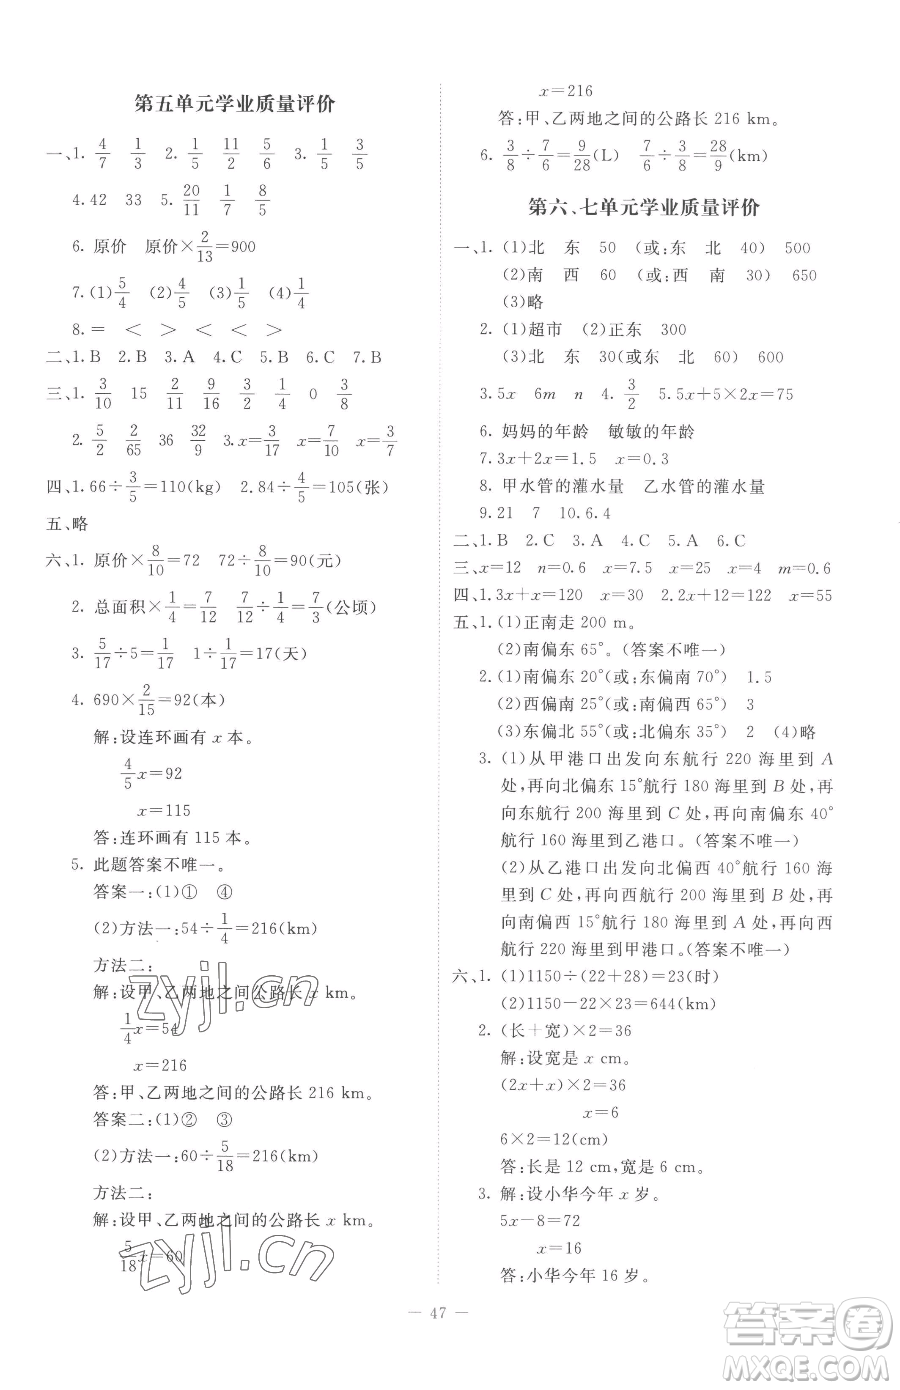 第五单元学业质量评价
一、1. 4/7 1/3 2. 1/5 11/2 5/6 3. 1/5 3/5
4.42 33 5. 20/11 1/7 8/5
6. 原价 原价×2/13=900
7.(1)5/4 (2)4/5 (3)1/5 (4)1/4
8.= < > < < >
二、1. B 2. B 3. A 4. B 5. C 6. C 7. B
三、1. 3/10 15 2/11 9/16 3/2 1/4 0 3/8
2. 5/2 2/65 36 32/9 3. x=3/17 x=7/10 x=3/7
四、1.66÷3/5=110(kg) 2.84÷4/5=105(张)
五、略
六、1. 原价×8/10=72 72÷8/10=90(元)
2. 总面积×1/4=7/12 7/12÷1/4=7/3(公顷)
3. 5/17÷5=1/17 1÷1/17=17(天)
4. 690×2/15=92(本)
解:设连环画有 x 本。
4/5x=92
x=115
答:连环画有 115 本。
5. 此题答案不唯一。
答案一:(1)① ④
(2)方法一:54÷1/4=216(km)
方法二:
解:设甲、乙两地之间的公路长 x km。
1/4x=54
x=216
答:甲、乙两地之间的公路长 216 km。
答案二:(1)② ③
(2)方法一:60÷5/18=216(km)
方法二:
解:设甲、乙两地之间的公路长 x km。
5/18x=60
x=216
答:甲、乙两地之间的公路长 216 km。
6. 3/8÷7/6=9/28(L) 7/6÷3/8=28/9(km)
第六、七单元学业质量评价
一、1. (1)北 东 50 (或:东 北 40) 500
(2)南 西 60 (或:西 南 30) 650
(3)略
2. (1)超市 (2)正东 300
(3)北 东 30(或:东 北 60) 600
3.5x 6m n 4. 3/2 5.5x+5×2x=75
6. 妈妈的年龄 敏敏的年龄
7.3x+2x=1.5 x=0.3
8. 甲水管的灌水量 乙水管的灌水量
9.21 7 10.6.4
二、1. B 2. C 3. A 4. C 5. A 6. C
三、x=12 n=0.6 x=7.5 x=4 m=0.6
四、1.3x+x=120 x=30 2.2x+12=122 x=55
五、1. (1)正南走 200 m。
(2)南偏东 65°。(答案不唯一)
2. (1)南偏东 20°(或:东偏南 70°) 1.5
(2)西偏南 25°(或:南偏西 65°) 3
(3)东偏北 55°(或:北偏东 35°) 2 (4)略
3. (1)从甲港口出发向东航行 220 海里到 A
处,再向北偏东 15°航行 180 海里到 B 处,再
向东航行 200 海里到 C 处,再向南偏东 40°
航行 160 海里到乙港口。(答案不唯一)
(2)从乙港口出发向北偏西 40°航行 160 海
里到 C 处,再向西航行 200 海里到 B 处,再
向南偏西 15°航行 180 海里到 A 处,再向西
航行 220 海里到甲港口。(答案不唯一)
六、1. (1)1150÷(22+28)=23(时)
(2)1150-22×23=644(km)
2. (长+宽)×2=36
解:设宽是 x cm。
(2x+x)×2=36
x=6
6×2=12(cm)
答:长是 12 cm,宽是 6 cm。
3. 解:设小华今年 x 岁。
5x-8=72
x=16
答:小华今年 16 岁。
— 47 —
zyjl.cn
zyjl.cn
答案圈
MXQE.COM